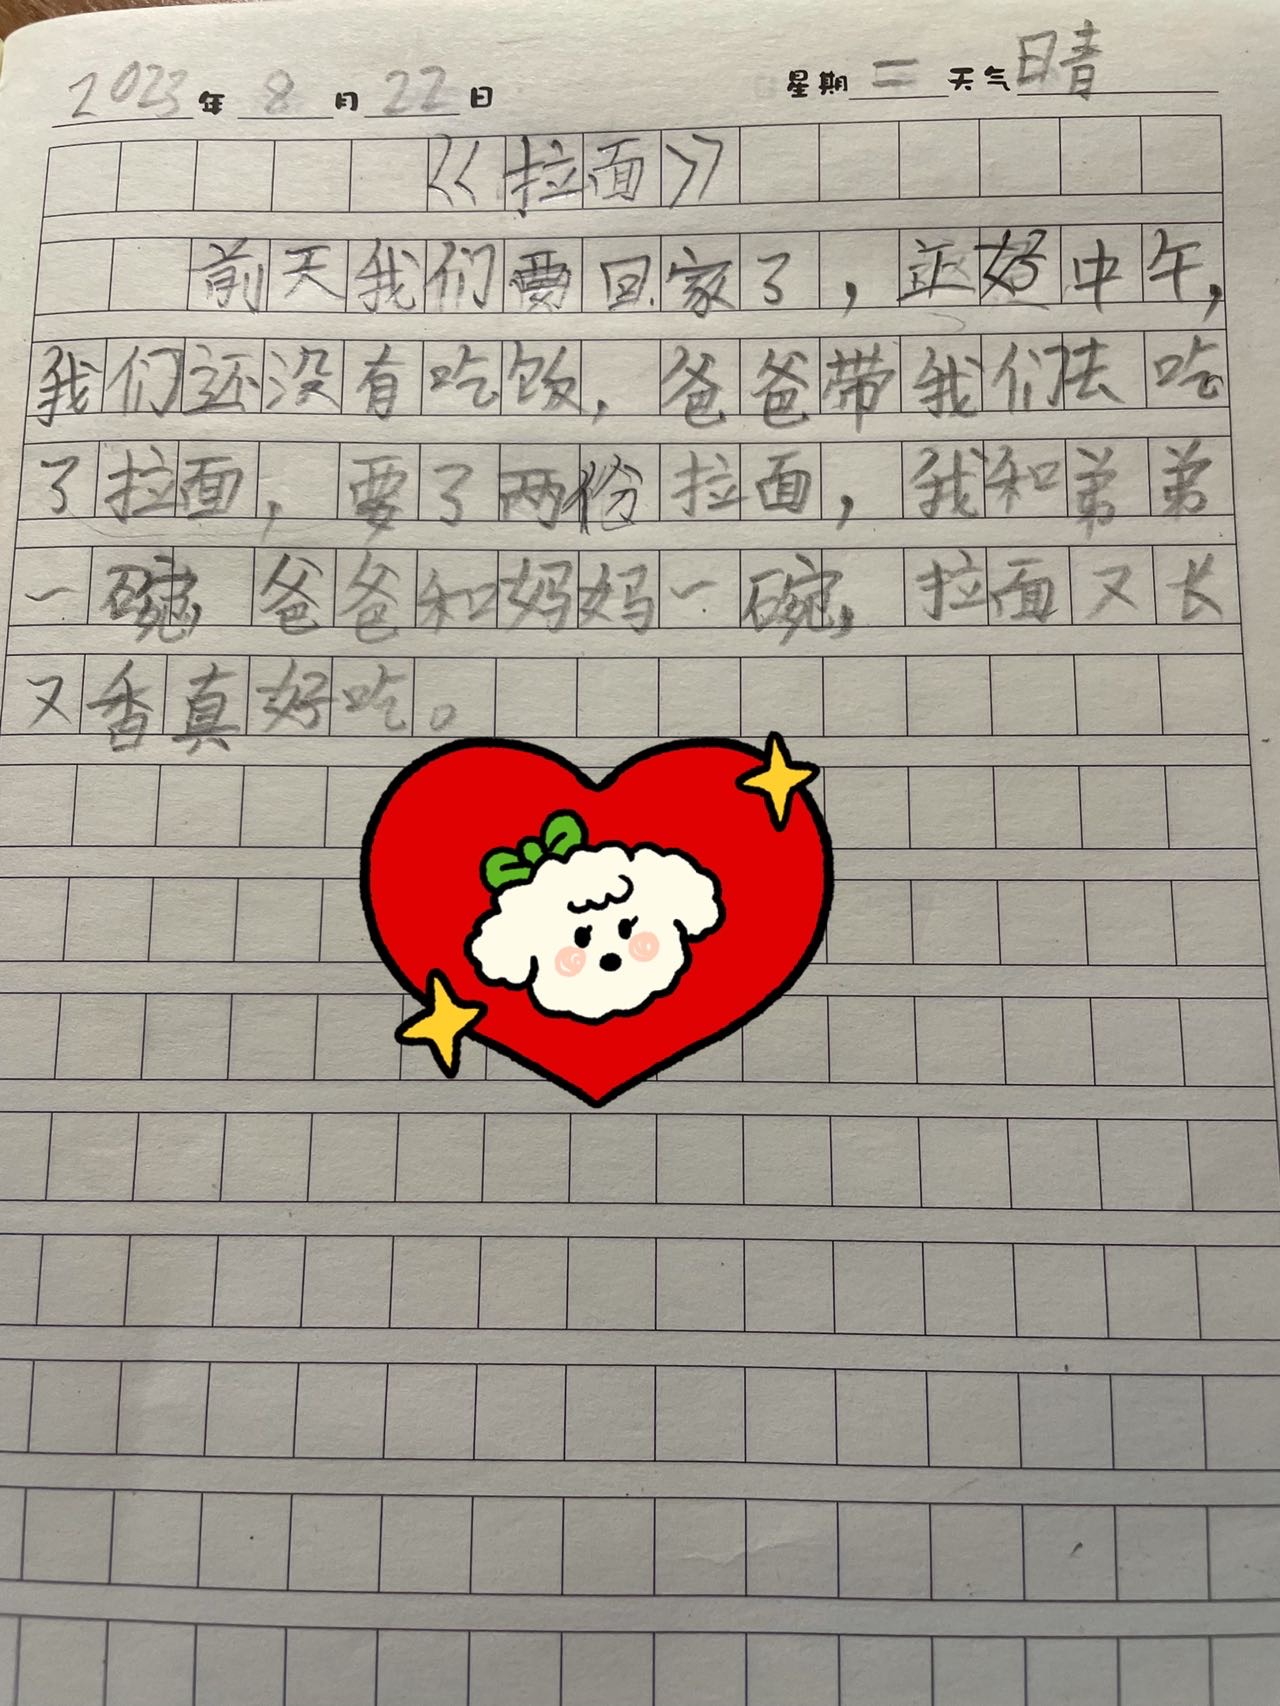 2023年8月22日 星期二 天气晴
《拉面》
前天我们要回家了，正好中午，
我们还没有吃饭，爸爸带我们去吃
了拉面，要了两份拉面，我和弟弟
一碗，爸爸和妈妈一碗，拉面又长
又香真好吃。